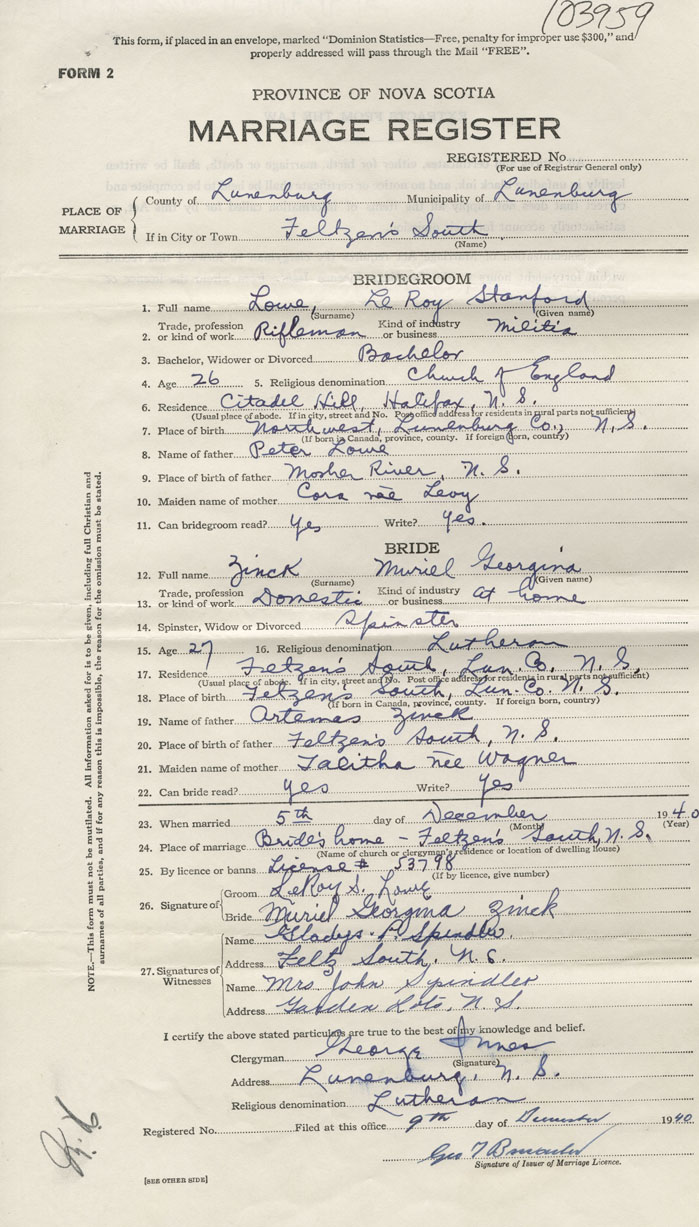 103959
This form, if placed in an envelope, marked "Dominion Statistics—Free, penalty for improper use $300," and
properly addressed will pass through the Mail "FREE".
FORM 2
PROVINCE OF NOVA SCOTIA
MARRIAGE REGISTER
REGISTERED No.
(For use of Registrar General only)
PLACE OF MARRIAGE
County of Lunenburg Municipality of Lunenburg
If in City or Town Feltzen's South
(Name)
BRIDEGROOM
1. Full name Lowe, Le Roy Stanford
(Surname) (Given name)
2. Trade, profession or kind of work Rifleman Kind of industry or business Militia
3. Bachelor, Widower or Divorced Bachelor
4. Age 26 5. Religious denomination Church of England
6. Residence Citadel Hill, Halifax, N. S.
(Usual place of abode. If in city, street and No. Post office address for residents in rural parts not sufficient)
7. Place of birth Northwest, Lunenburg Co., N. S.
(If born in Canada, province, county. If foreign born, country)
8. Name of father Peter Lowe
9. Place of birth of father Mosher River, N. S.
10. Maiden name of mother Cora née Levy
11. Can bridegroom read? Yes Write? Yes.
BRIDE
12. Full name Zinck Muriel Georgina
(Surname) (Given name)
13. Trade, profession or kind of work Domestic Kind of industry or business at home
14. Spinster, Widow or Divorced Spinster
15. Age 27 16. Religious denomination Lutheran
17. Residence Feltzen's South, Lun. Co. N. S.
(Usual place of abode. If in city, street and No. Post office address for residents in rural parts not sufficient)
18. Place of birth Feltzen's South, Lun. Co. N. S.
(If born in Canada, province, county. If foreign born, country)
19. Name of father Artemas Zinck
20. Place of birth of father Feltzen's South, N. S.
21. Maiden name of mother Talitha née Wagner
22. Can bride read? Yes Write? Yes
23. When married 5th day of December 1940
(Month) (Year)
24. Place of marriage Bride's home - Feltzen's South, N. S.
(Name of church or clergyman's residence or location of dwelling house)
25. By licence or banns License # 53798
(If by licence, give number)
26. Signature of
Groom LeRoy S. Lowe
Bride Muriel Georgina Zinck
27. Signatures of Witnesses
Name Gladys P. Spindler.
Address Feltz South, N. S.
Name Mrs John Spindler
Address Garden Lots, N. S.
I certify the above stated particulars are true to the best of my knowledge and belief.
Clergyman George Innes
(Signature)
Address Lunenburg, N. S.
Religious denomination Lutheran
Registered No. Filed at this office 9th day of December 1940
Geo T
Signature of Issuer of Marriage Licence.
[SEE OTHER SIDE]
NOTE.—This form must not be mutilated. All information asked for is to be given, including full Christian and
surnames of all parties, and if for any reason this is impossible, the reason for the omission must be stated.